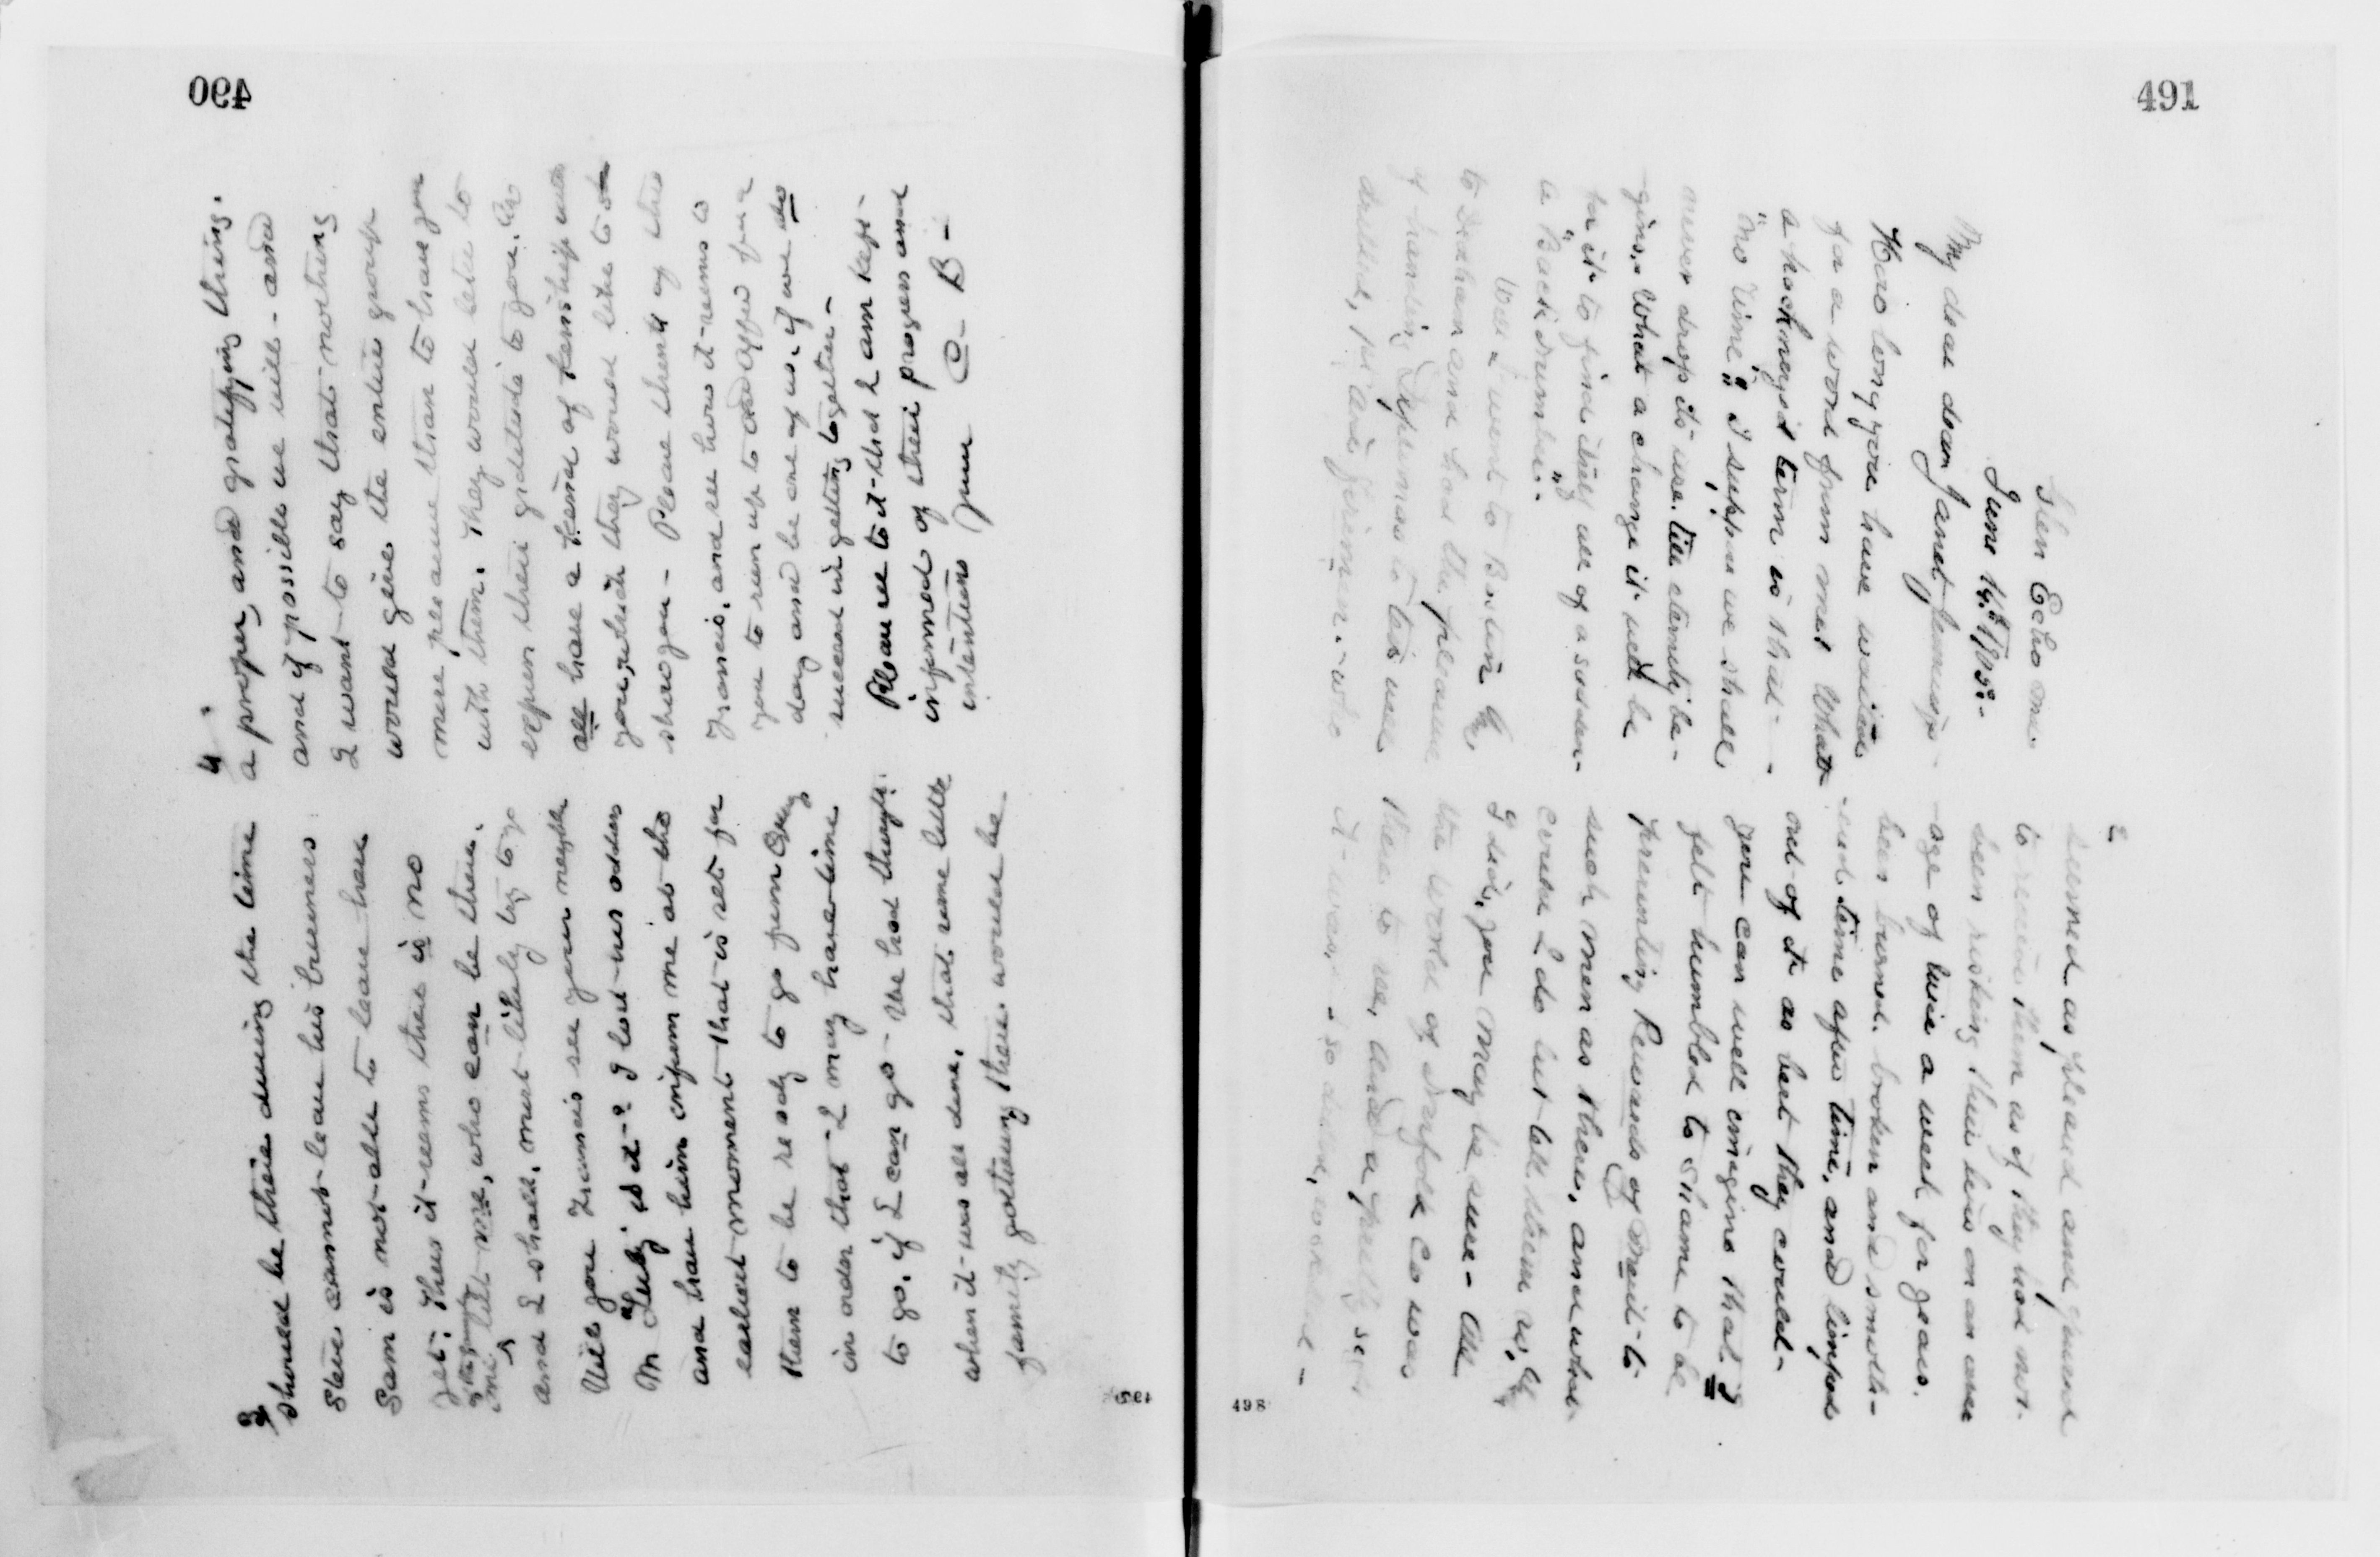 490
3
should be there during the time
Steve cannot leave his business
Sam is not able to leave here
yet. Thus it seems there is no
one left me, who can be there.
and I shall, most likely try to go
Will you Francis see your neighbor
and have him inform me at the
earliest moment that is set for
them to be ready to go
in order that I may have time
to go, if I can go. We had thought
when it was all done, that some little
family gathering there would be
4
a proper, and gratifying thing.
and if possible we will - and
I want to say that nothing
would give the entire group
more pleasure than to have you
with them. They would like to
express their gratitude to you. We
all have a kind of kinship with
you, which they would like to
show you - Please think of this
Francis, and see how it seems to
you to run up to Oxford for a
day and be one of us, if we do
succeed in getting together -
Please see to it that I am kept
informed of their progress and
intentions Yours C- B-
132
491
Glen Echo Md.
June 14th 1905 -
My dear dear Janet Jennings -
How long you have waited
for a word from me! What
a hackneyed term is that -
"no time"! I suppose we shall
never drop its use till eternity be-
gins. What a change it will be
for it to find itself all of a sudden
a "Back number" -
Well I went to Boston &
to Dedham and had the pleasure
of handing Diplomas to ten well
drilled, 1st Aid firemen. - who
2
seemed as pleased and proud
to receive them as if they had not
been risking their lives on an aver-
age of twice a week for years.
been burned, broken and smoth-
ered time after time, and limped
out of it as best they could -
you can well imagine that I
felt humbled to shame to be
presenting Rewards of Merit to
such men as these, and what
could I do but tell them so, &
I did, you may be sure - All
the world of Norfolk Co was
there to see, and a pretty sight
it was, - so drilled, costumed -
498